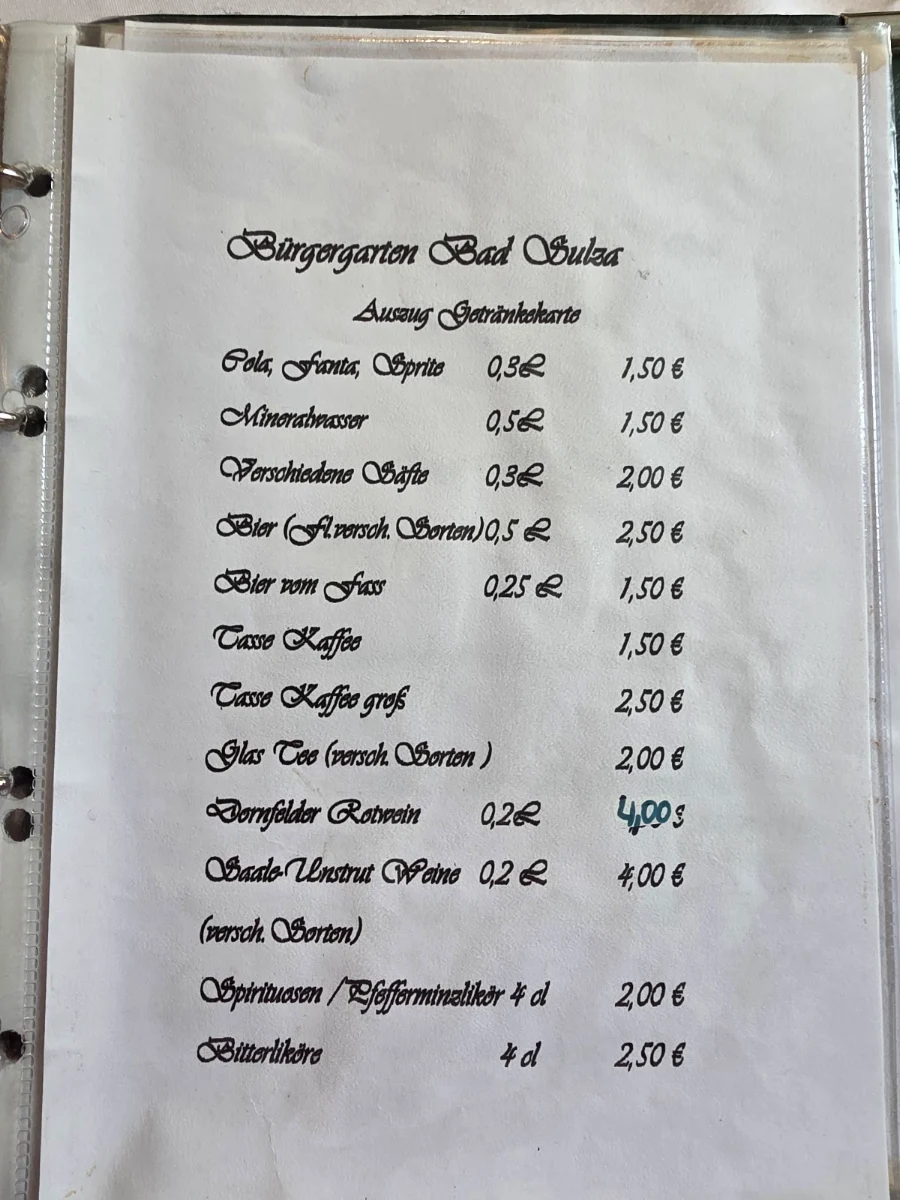 Bürgergarten Bad Sulza
Auszug Getränkekarte
Cola, Fanta, Sprite 0,3L 1,50 €
Mineralwasser 0,5L 1,50 €
Verschiedene Säfte 0,3L 2,00 €
Bier (Fl.versch. Sorten) 0,5 L 2,50 €
Bier vom Fass 0,25 L 1,50 €
Tasse Kaffee 1,50 €
Tasse Kaffee groß 2,50 €
Glas Tee (versch. Sorten ) 2,00 €
Dornfelder Rotwein 0,2L 4,00
Saale-Unstrut Weine 0,2 L 4,00 €
(versch. Sorten)
Spirituosen / Pfefferminzlikör 4 cl 2,00 €
Bitterliköre 4 cl 2,50 €